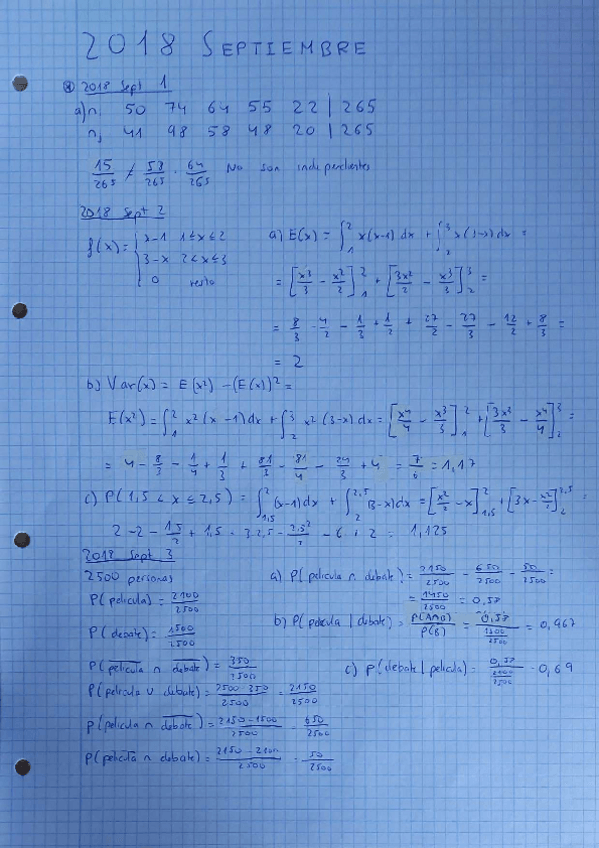 2018 SEPTIEMBRE
2018 Sept 1
a) n. 50 74 64 55 22 | 265
n, 41 98 58 48 20 | 265
15/265 ≠ 53/265 · 64/265 No son independientes
2018 Sept 2
f(x) = { x-1 1≤x≤2
3-x 2<x≤3
0 resto
a) E(x) = ∫₁² x(x-1) dx + ∫₂³ x(3-x) dx =
= [x³/3 - x²/2]₁² + [3x²/2 - x³/3]₂³ =
= 8/3 - 4/2 - 1/3 + 1/2 + 27/2 - 27/3 - 12/2 + 8/3 =
= 2
b) Var(x) = E(x²) - (E(x))² =
E(x²) = ∫₁² x²(x-1) dx + ∫₂³ x²(3-x) dx = [x⁴/4 - x³/3]₁² + [3x³/3 - x⁴/4]₂³ =
= 4 - 8/3 - 1/4 + 1/3 + 81/3 - 81/4 - 24/3 + 4 = 7/6 = 1,17
c) P(1,5 ≤ x ≤ 2,5) = ∫₁,₅² (x-1) dx + ∫₂²,⁵ (3-x) dx = [x²/2 - x]₁,₅² + [3x - x²/2]₂²,⁵ =
2 - 2 - 1,5/2 + 1,5 + 3·2,5 - 2,5²/2 - 6 + 2 = 1,125
2018 Sept 3
2500 personas
P(pelicula) = 2100/2500
P(debate) = 1500/2500
P(pelicula ∩ debate) = 350/2500
P(pelicula ∪ debate) = 2500-350/2500 = 2150/2500
P(pelicula ∩ debate) = 2150-1500/2500 = 650/2500
P(pelicula ∩ debate) = 2150-2100/2500 = 50/2500
a) P(pelicula ∩ debate) = 2150/2500 - 650/2500 - 50/2500 =
= 1450/2500 = 0,58
b) P(pelicula | debate) = P(A∩B)/P(B) = 0,58/(1500/2500) = 0,967
c) P(debate | pelicula) = 0,58/(2100/2500) = 0,69